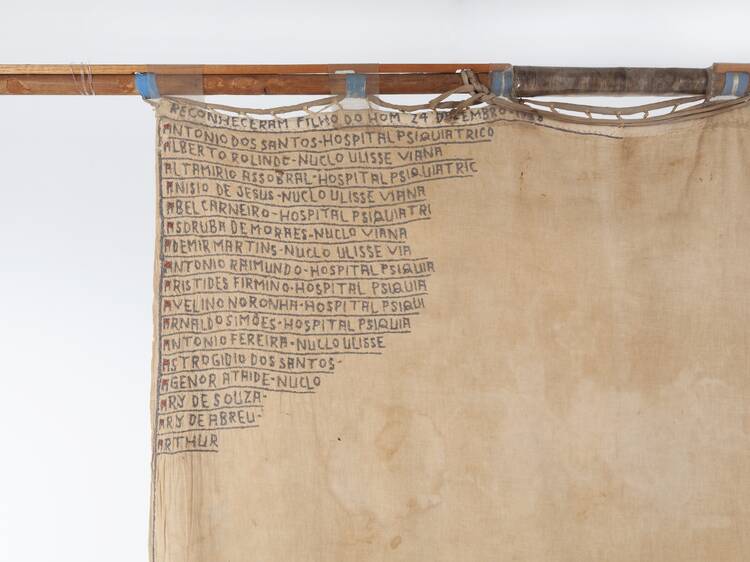 RECONHECERAM FILHO DO HOM 24 DEZEMBRO-1938
ANTONIO DOS SANTOS-HOSPITAL PSIQUIATRICO
ALBERTO ROLINDO-NUCLO ULISSE VIANA
ALTAMIRIO ASSOBRAL-HOSPITAL PSIQUIATRIC
ANISIO DE JESUS-NUCLO ULISSE VIANA
ABEL CARNEIRO-HOSPITAL PSIQUIATRI
ASDRUBA DE MORAES-NUCLO VIANA
ADEMIR MARTINS-NUCLO ULISSE VIA
ANTONIO RAIMUNDO-HOSPITAL PSIQUIA
ARISTIDES FIRMINO-HOSPITAL PSIQUIA
AVELINO NORONHA-HOSPITAL PSIQUI
ARNALDO SIMÕES-HOSPITAL PSIQUIA
ANTONIO FEREIRA-NUCLO ULISSE
ASTROGIDIO DOS SANTOS-
AGENOR ATAIDE-NUCLO
ARY DE SOUZA-
ARY DE ABREU-
ARTHUR